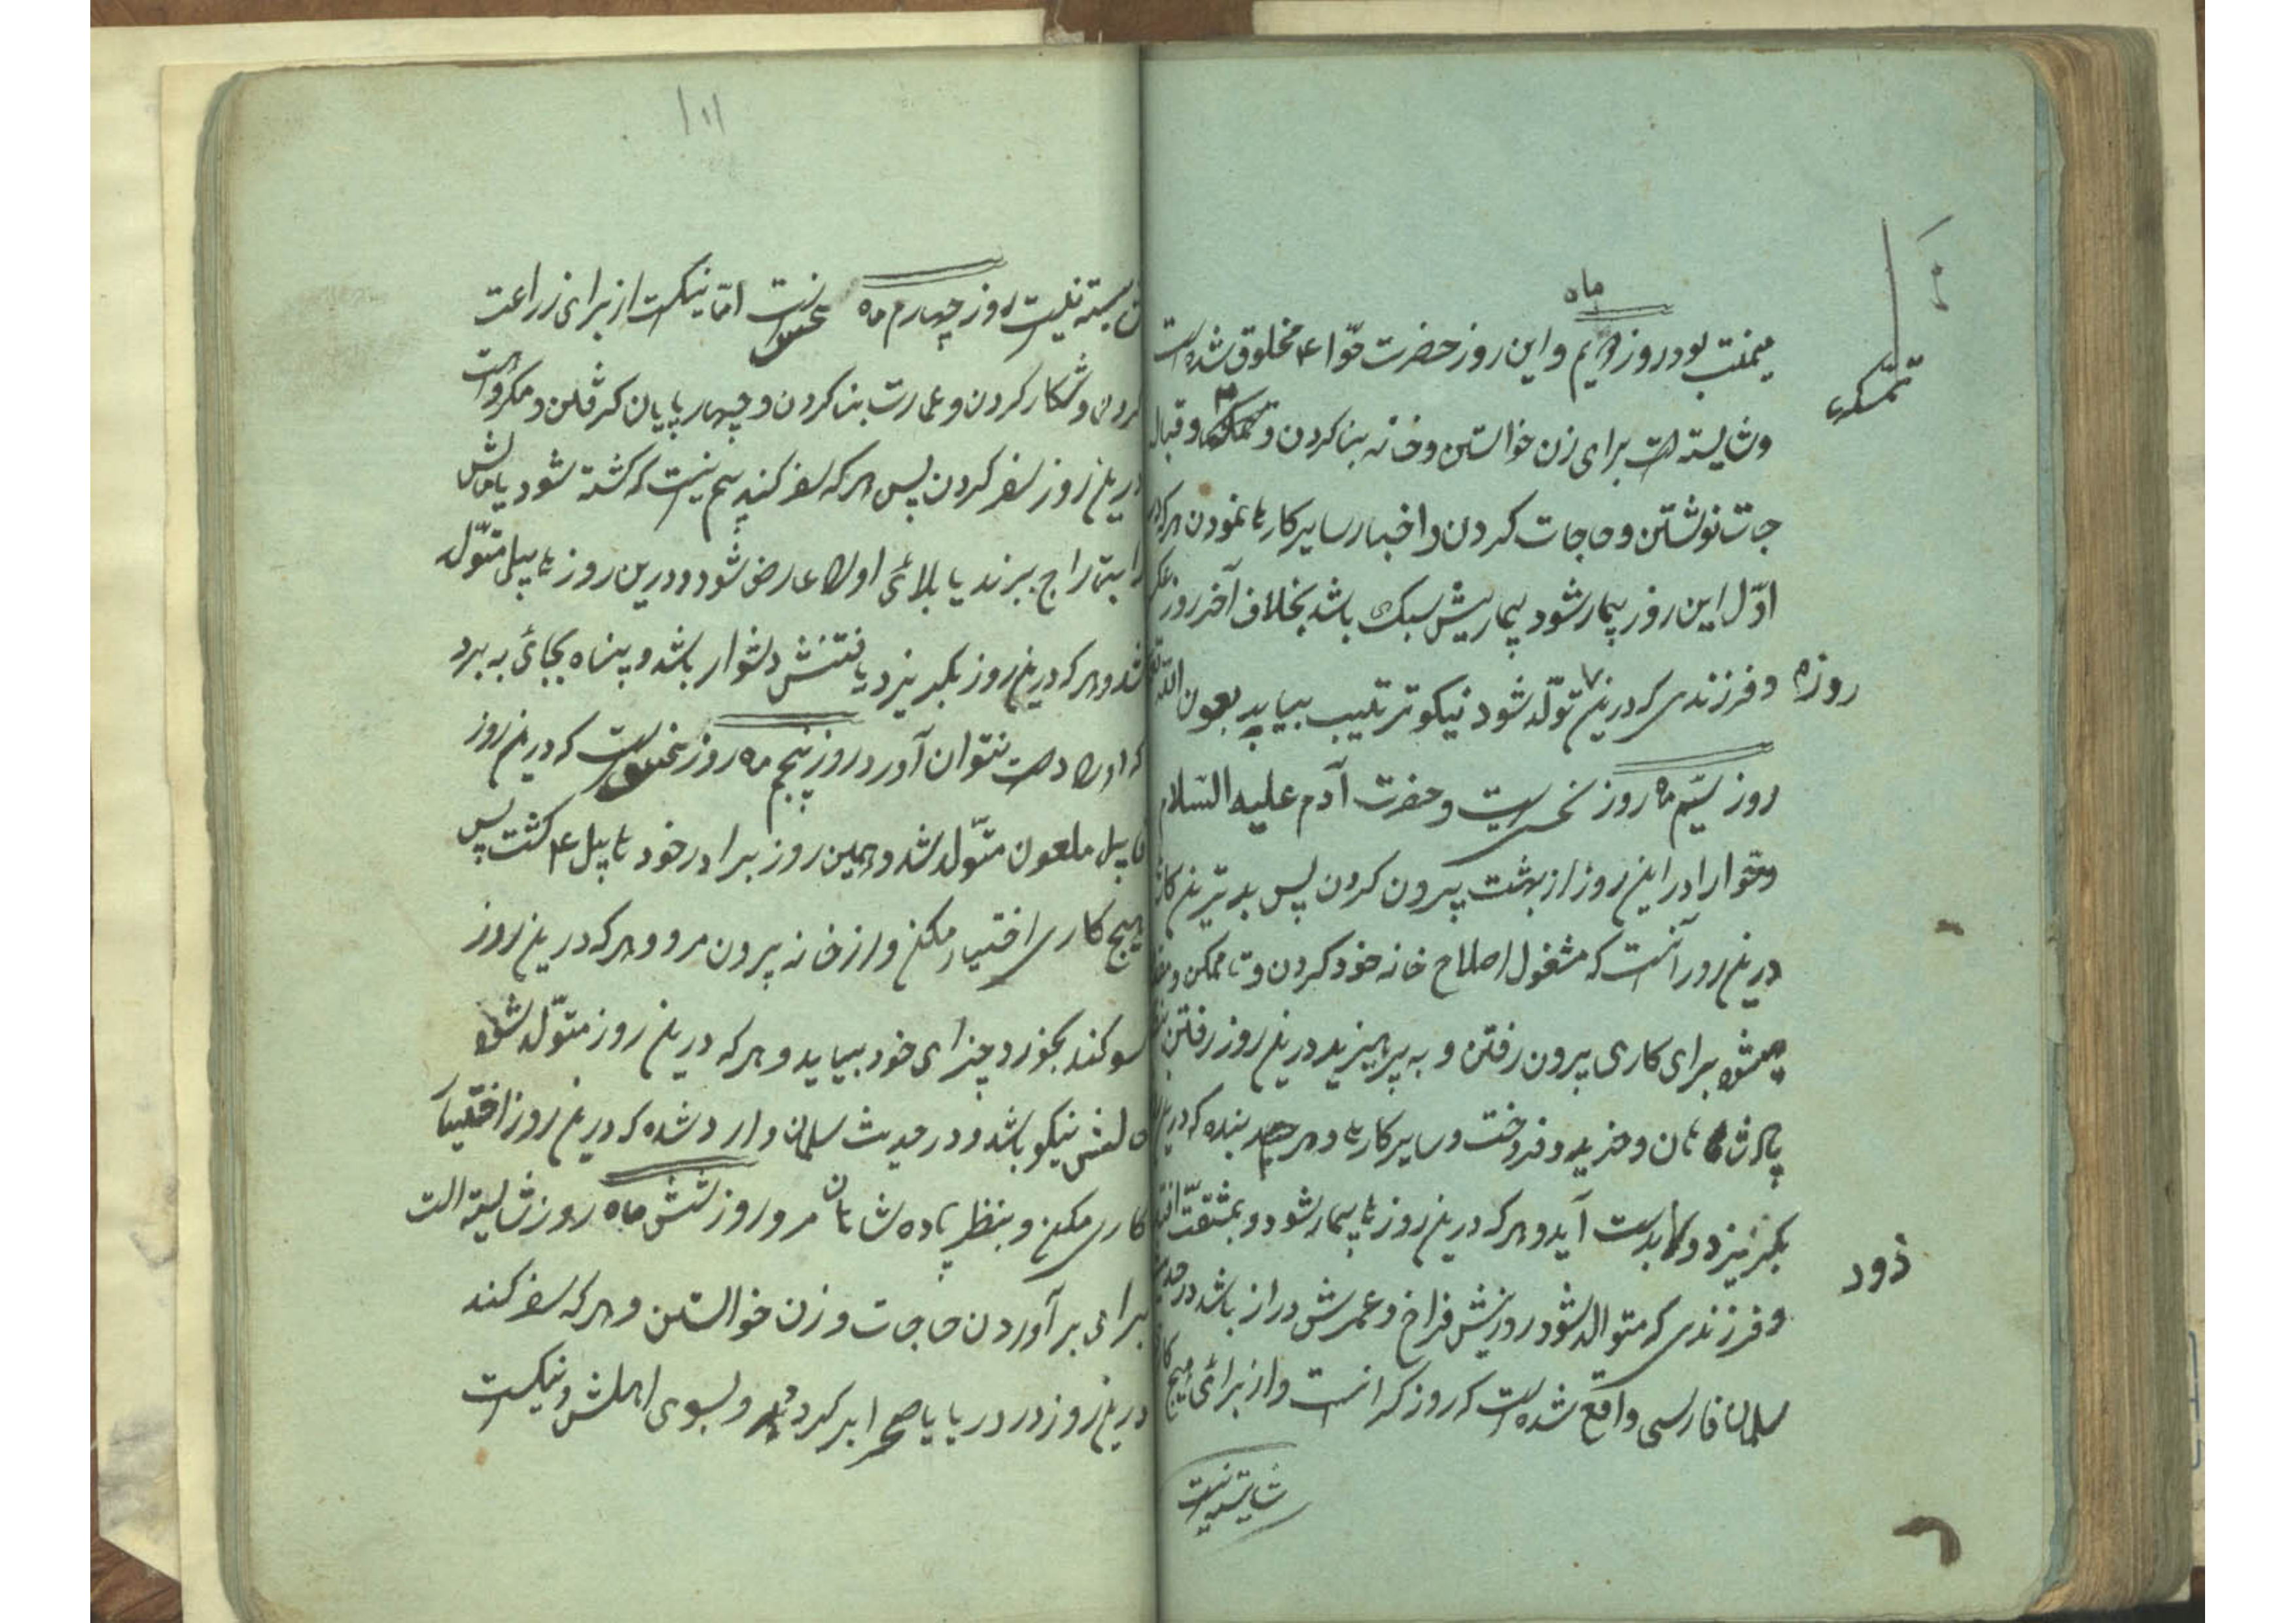 ماه
میمنت بود روز دویم و این روز حضرت حوّا ع مخلوق شده است
و شایسته است برای زن خواستن و خانه بنا کردن و تمسکها و قباله
تمسکهء
جات نوشتن و حاجات کردن و اخبار سایر کارها نمودن هر که در
اوّل این روز بیمار شود بیماریش سبک باشد بخلاف آخر روز
روزه و فرزندی که درین تولّد شود نیکو ترتیب بیابد بعون الله
روز سیّم ماه روز نحس است و حضرت آدم علیه السّلام
و حوّا را در این روز از بهشت بیرون کردن پس بدترین کار
درین روز آنست که مشغول اصلاح خانه خود کردن و تا ممکن و
میشود برای کاری بیرون رفتن و به پرهیزید درین روز رفتن
پادشاهان و خرید و فروخت و سایر کارها و هر بنده که درین
بگریزد بدست آید و هر که درین روزها بیمار شود و بمشقّت افتد
زود
و فرزندی که متوالد شود روزیش فراخ و عمرش دراز باشد در حدیث
سلمان فارسی واقع شده است که روز گرانست و از برائی هیچ کار
شایسته نیست
۱۱۱
شایسته نیست روز چهارم ماه نحس است امّا نیکست از برای زراعت
کردن و شکار کردن و عمارت بنا کردن و چهارپایان گرفتن و مکروه است
درین روز سفر کردن پس هر که سفر کند بیم نیست که کشته شود یا مالش
را بتاراج ببرند یا بلائی اورا عارض شود و درین روز هابیل متوّلد
شد و هر که درین روز بگریزد یافتنش دشوار باشد و پناه بجائی به برد
که اورا دست نتوان آورد روز پنجم ماه روز نحس است که درین روز
قابیل ملعون متوّلد شد و همین روز برادر خود هابیل ع کشت پس
هیچ کاری اختیار مکن و از خانه بیرون مرو و هر که درین روز
سوکند بخورد جزای خود بیابد و هر که درین روز متوّلد شود
حالش نیکو باشد و در حدیث سلمان وارد شده که درین روز اختیار
کاری مکن و بنظر پادهشاهان مرو روز شش ماه روز شایسته است
برای برآوردن حاجات و زن خواستن و هر که سفر کند
درین روز در دریا یا صحرا بر کردد و بسوی اهلش و نیکست